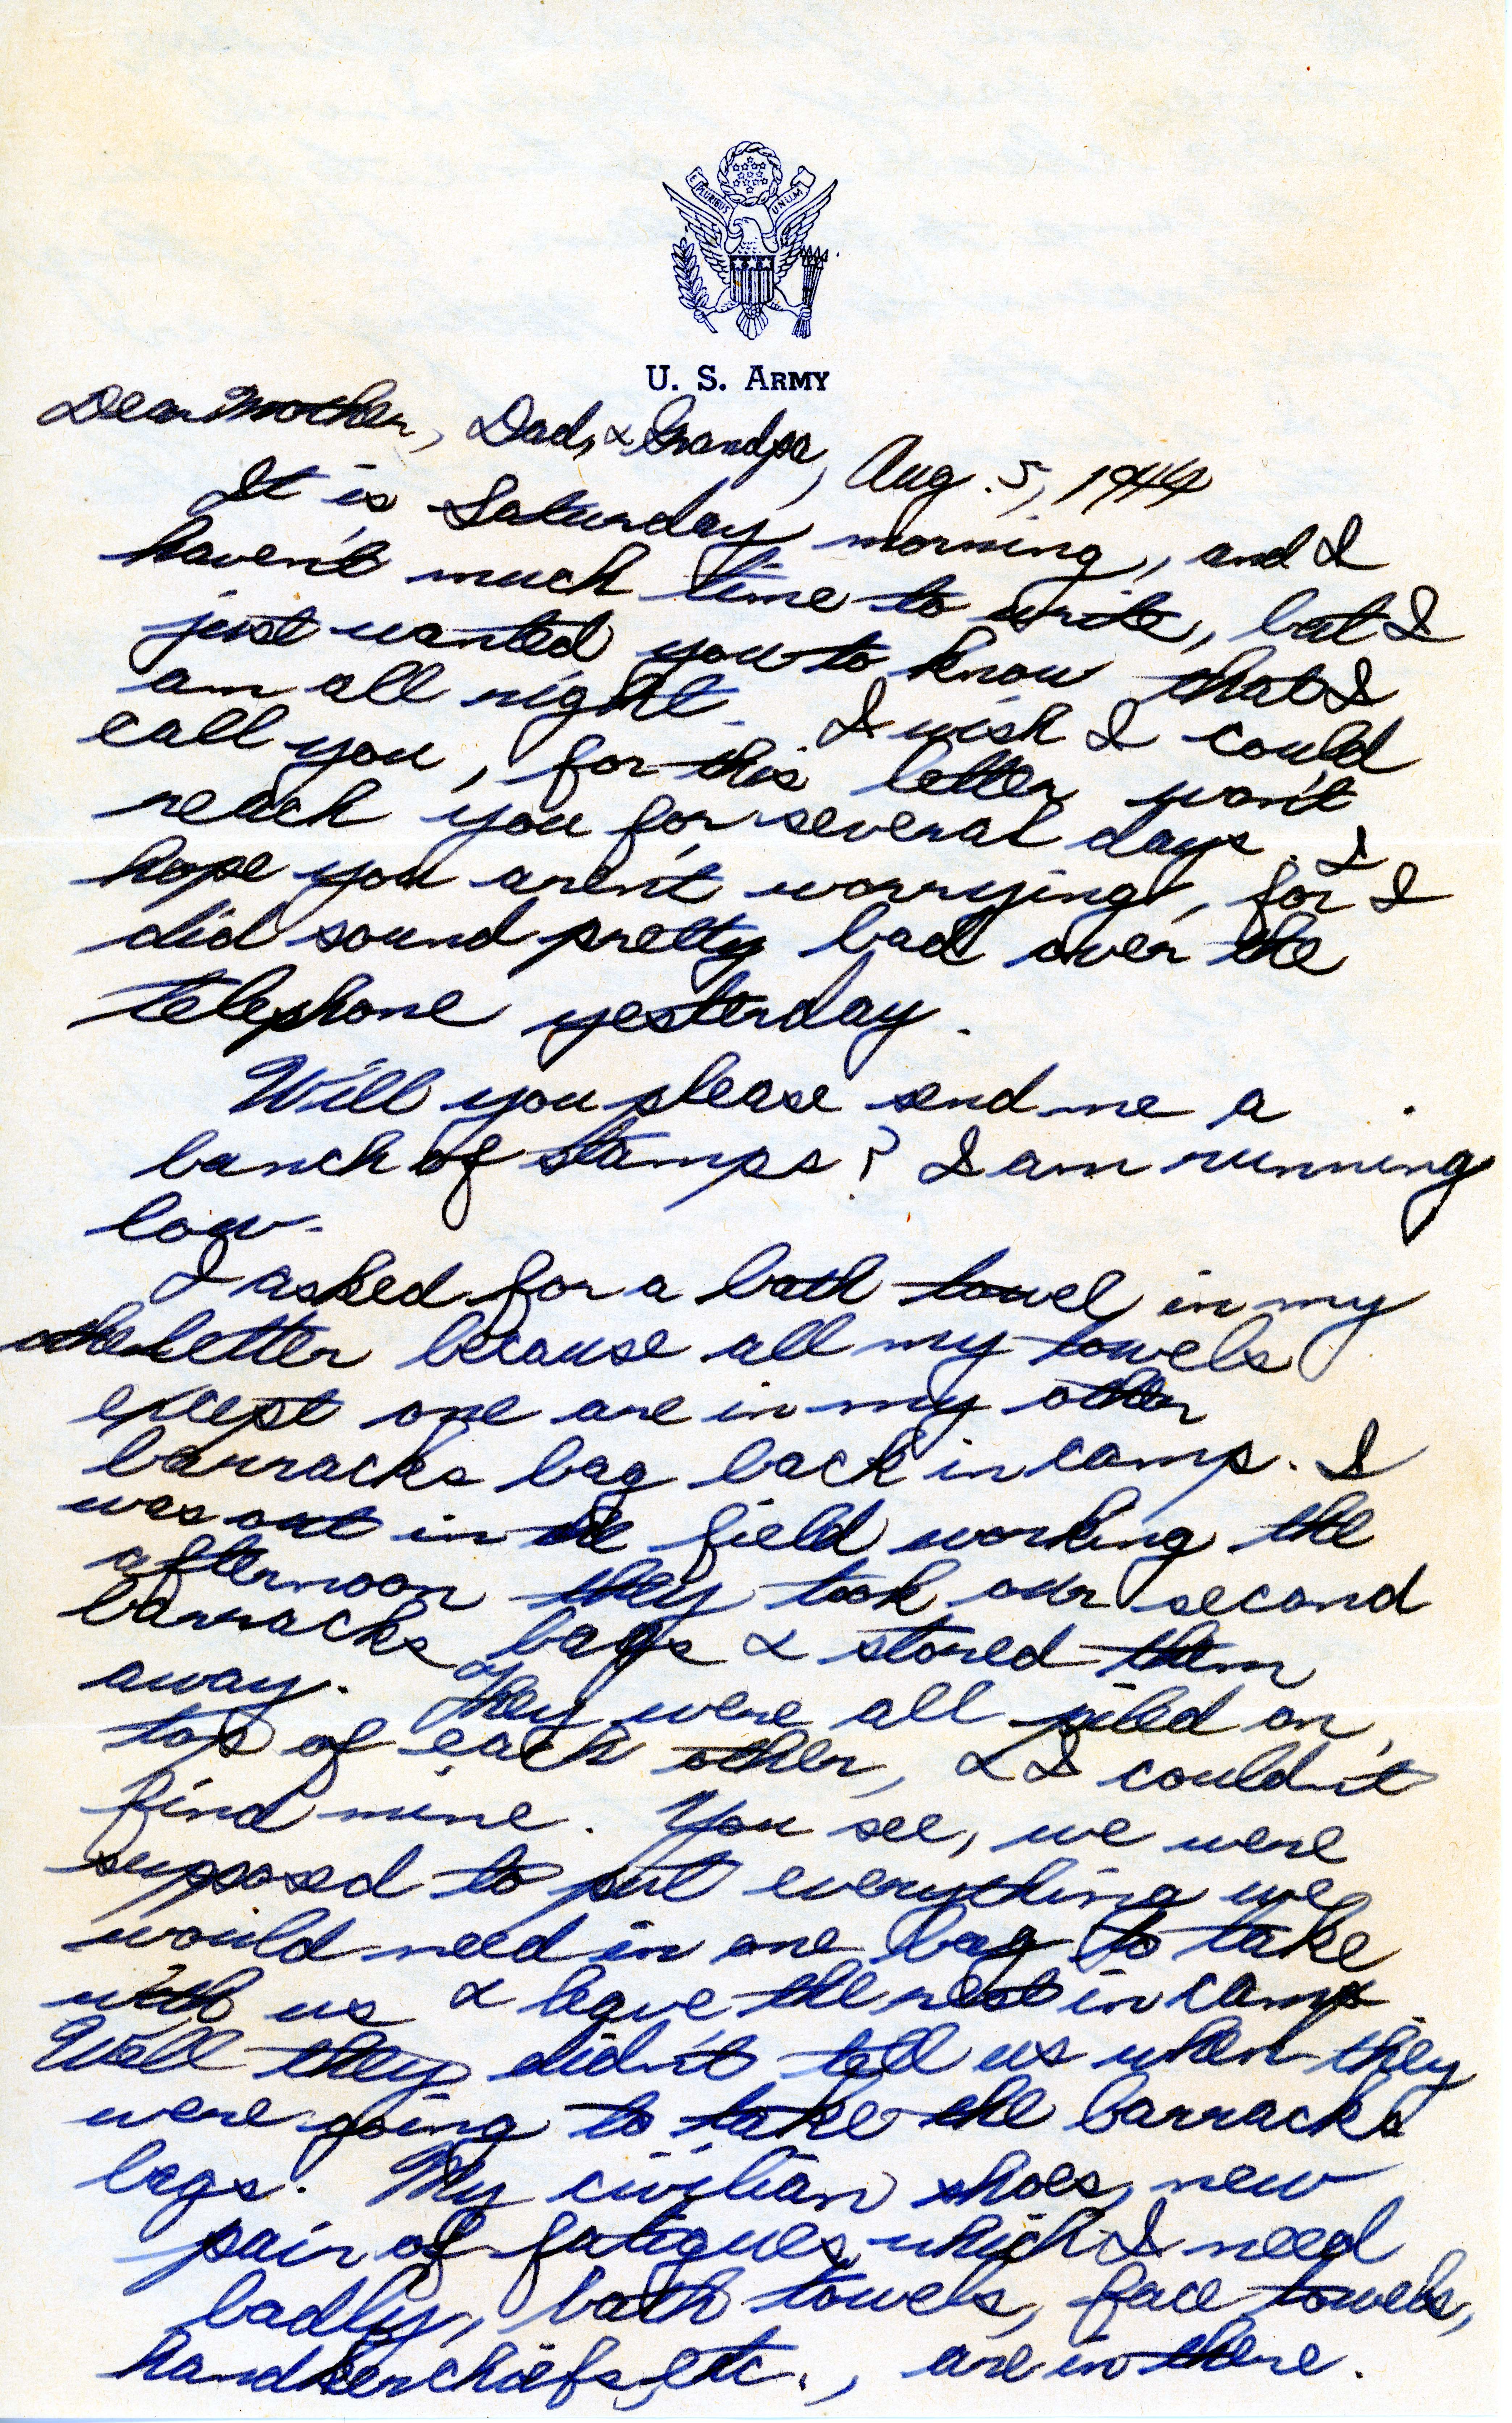 E PLURIBUS UNUM
U. S. ARMY
Dear Mother, Dad, & Grandpa, Aug. 5, 1944
It is Saturday morning, and I
haven't much time to write, but I
just wanted you to know that I
am all right. I wish I could
call you, for this letter won't
reach you for several days. I
hope you aren't worrying, for I
did sound pretty bad over the
telephone yesterday.
Will you please send me a
bunch of stamps? I am running
low.
I asked for a bath towel in my
other letter because all my towels
except one are in my other
barracks bag back in camp. I
was out in the field working the
afternoon they took our second
barracks bags & stored them
away. They were all piled on
top of each other, & I couldn't
find mine. You see, we were
supposed to put everything we
would need in one bag to take
with us & leave the rest in camp.
Well they didn't tell us when they
were going to take the barracks
bags. My civilian shoes, new
pair of fatigues which I need
badly, bath towels, face towels,
handkerchiefs, etc., are in there.